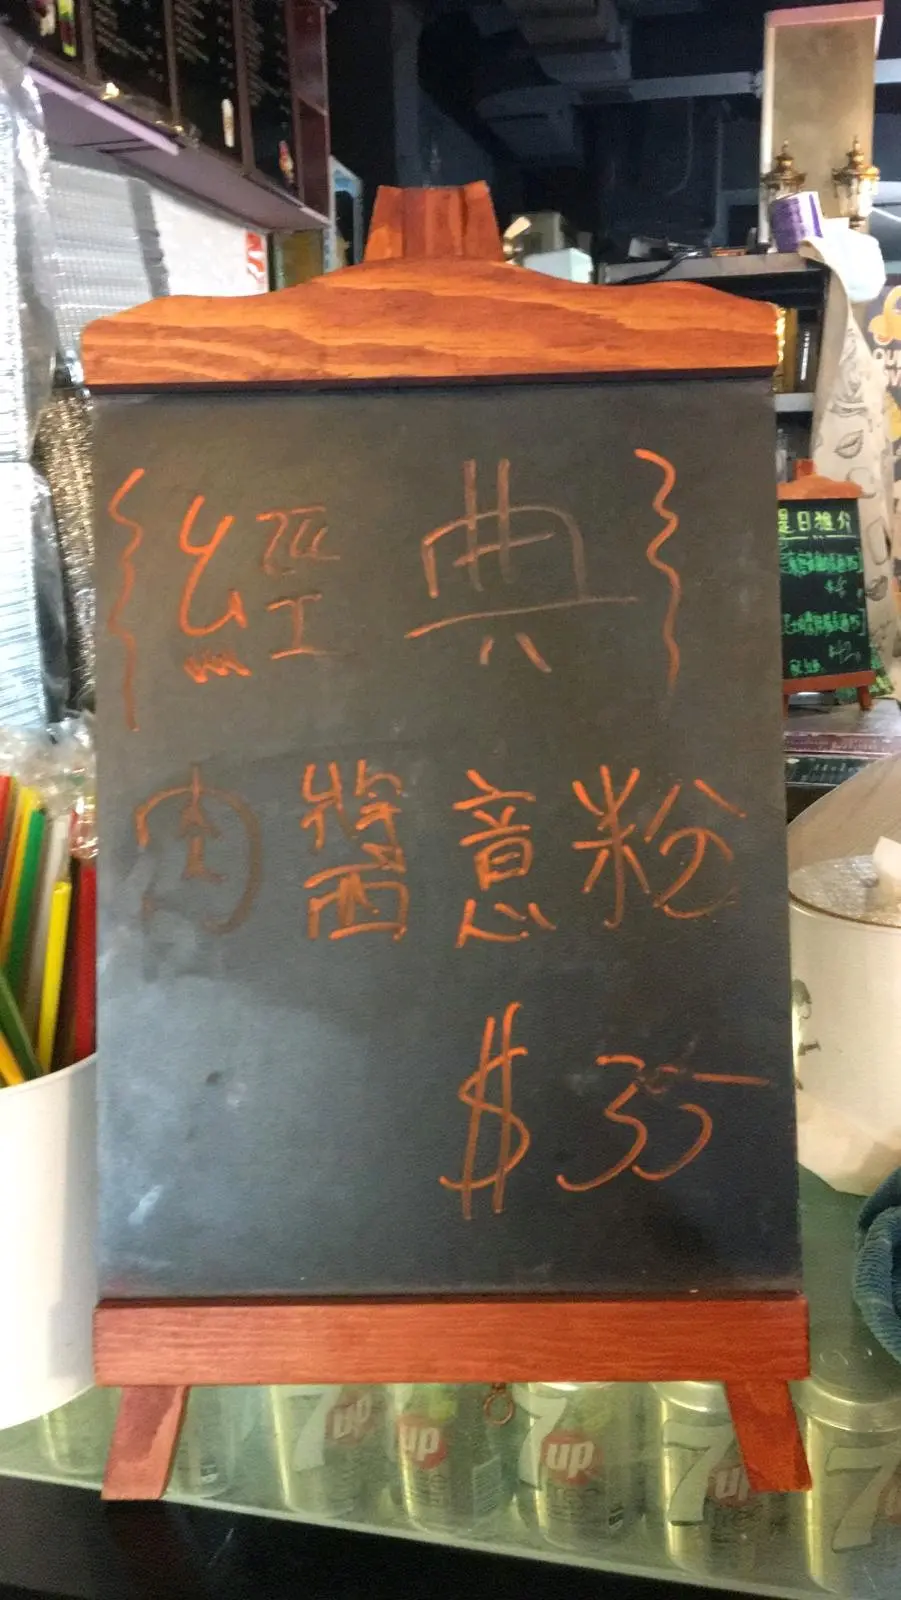 {經典}
肉醬意粉
$35
是日推介
$42
7up
up
7up
7up
7